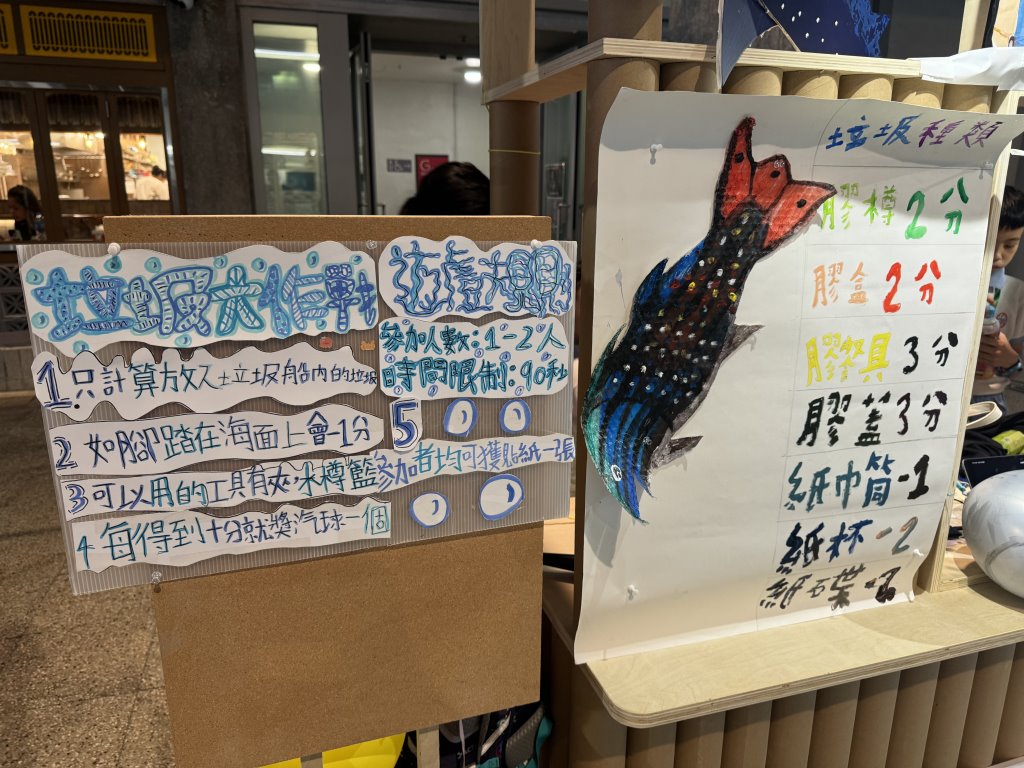 垃圾大作戰
遊戲大
參加人數：1-2人
時間限制：90秒
1.只計算放入垃圾船內的垃圾
2 如腳踏在海面上會-1分
3 可以用的工具有夾，水樽籃
4 每得到十分就獎汽球一個
5
參加者均可獲貼紙一張
垃圾種類
膠樽 2分
膠盒 2分
膠餐具 3分
膠蓋 3分
紙巾筒 -1
紙杯 -2